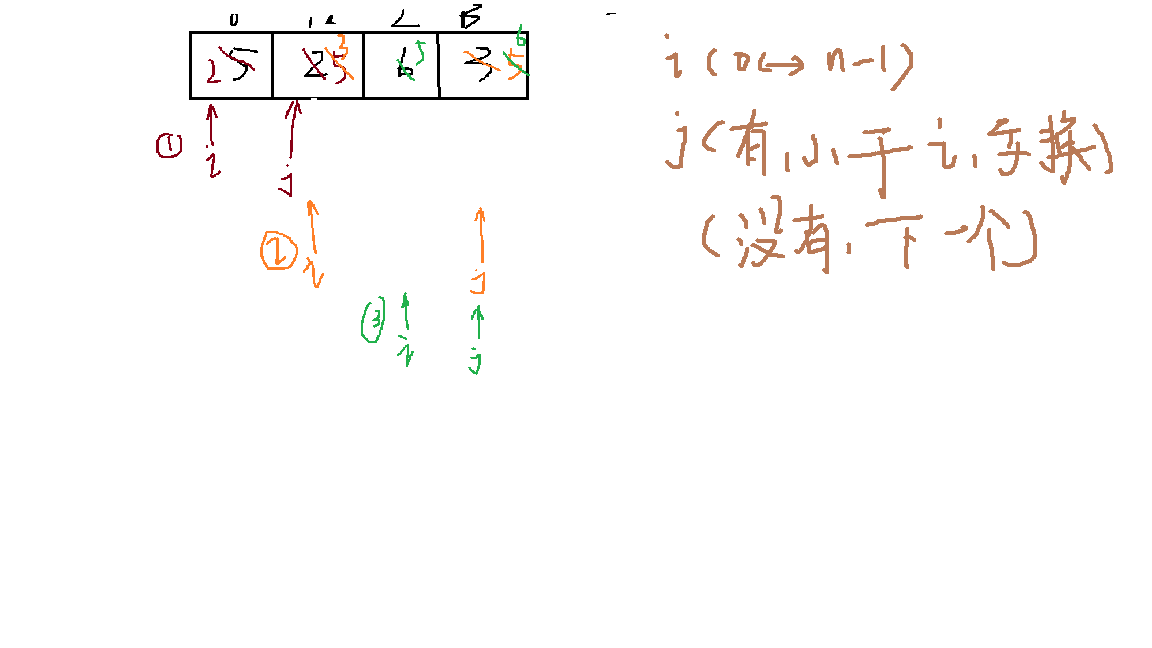 0 1 2 3
2 5 2 5 3 6 5 3 5 6
① i j
② i j
③ i j
i (0 ↔ n-1)
j (有,小于i,交换)
(没有,下一个)